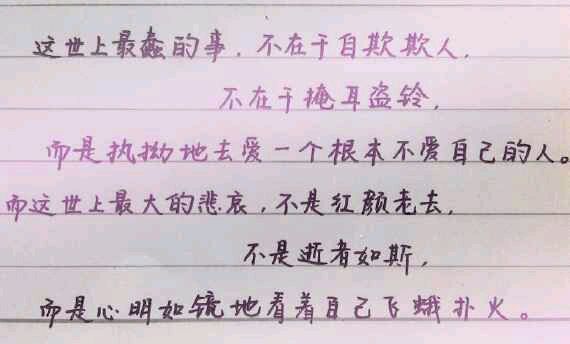 这世上最蠢的事,不在于自欺欺人,
不在于掩耳盗铃,
而是执拗地去爱一个根本不爱自己的人。
而这世上最大的悲哀,不是红颜老去,
不是逝者如斯,
而是心明如镜地看着自己飞蛾扑火。